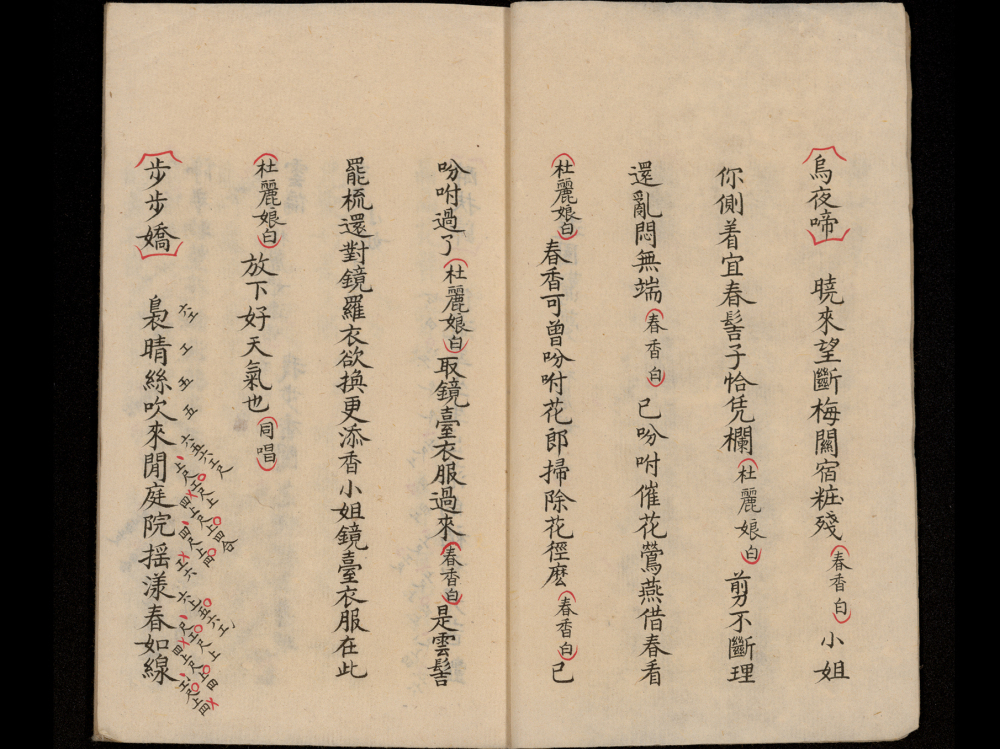 烏夜啼 曉來望斷梅關宿粧殘(春香白)小姐
你側着宜春髻子恰凭欄(杜麗娘白)剪不斷理
還亂悶無端(春香白)已吩咐催花鶯燕借春看
(杜麗娘白)春香可曾吩咐花郎掃除花徑麽(春香白)已
吩咐過了(杜麗娘白)取鏡臺衣服過來(春香白)是雲髻
罷梳還對鏡羅衣欲換更添香小姐鏡臺衣服在此
(杜麗娘白)放下好天氣也(同唱)
步步嬌 裊晴絲吹來閒庭院搖漾春如線